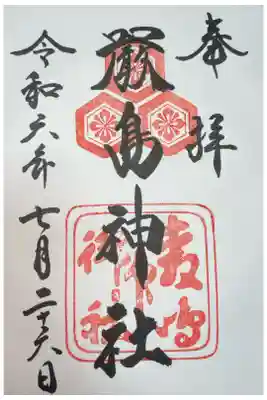 奉拝
嚴島神社
令和六年七月二十六日